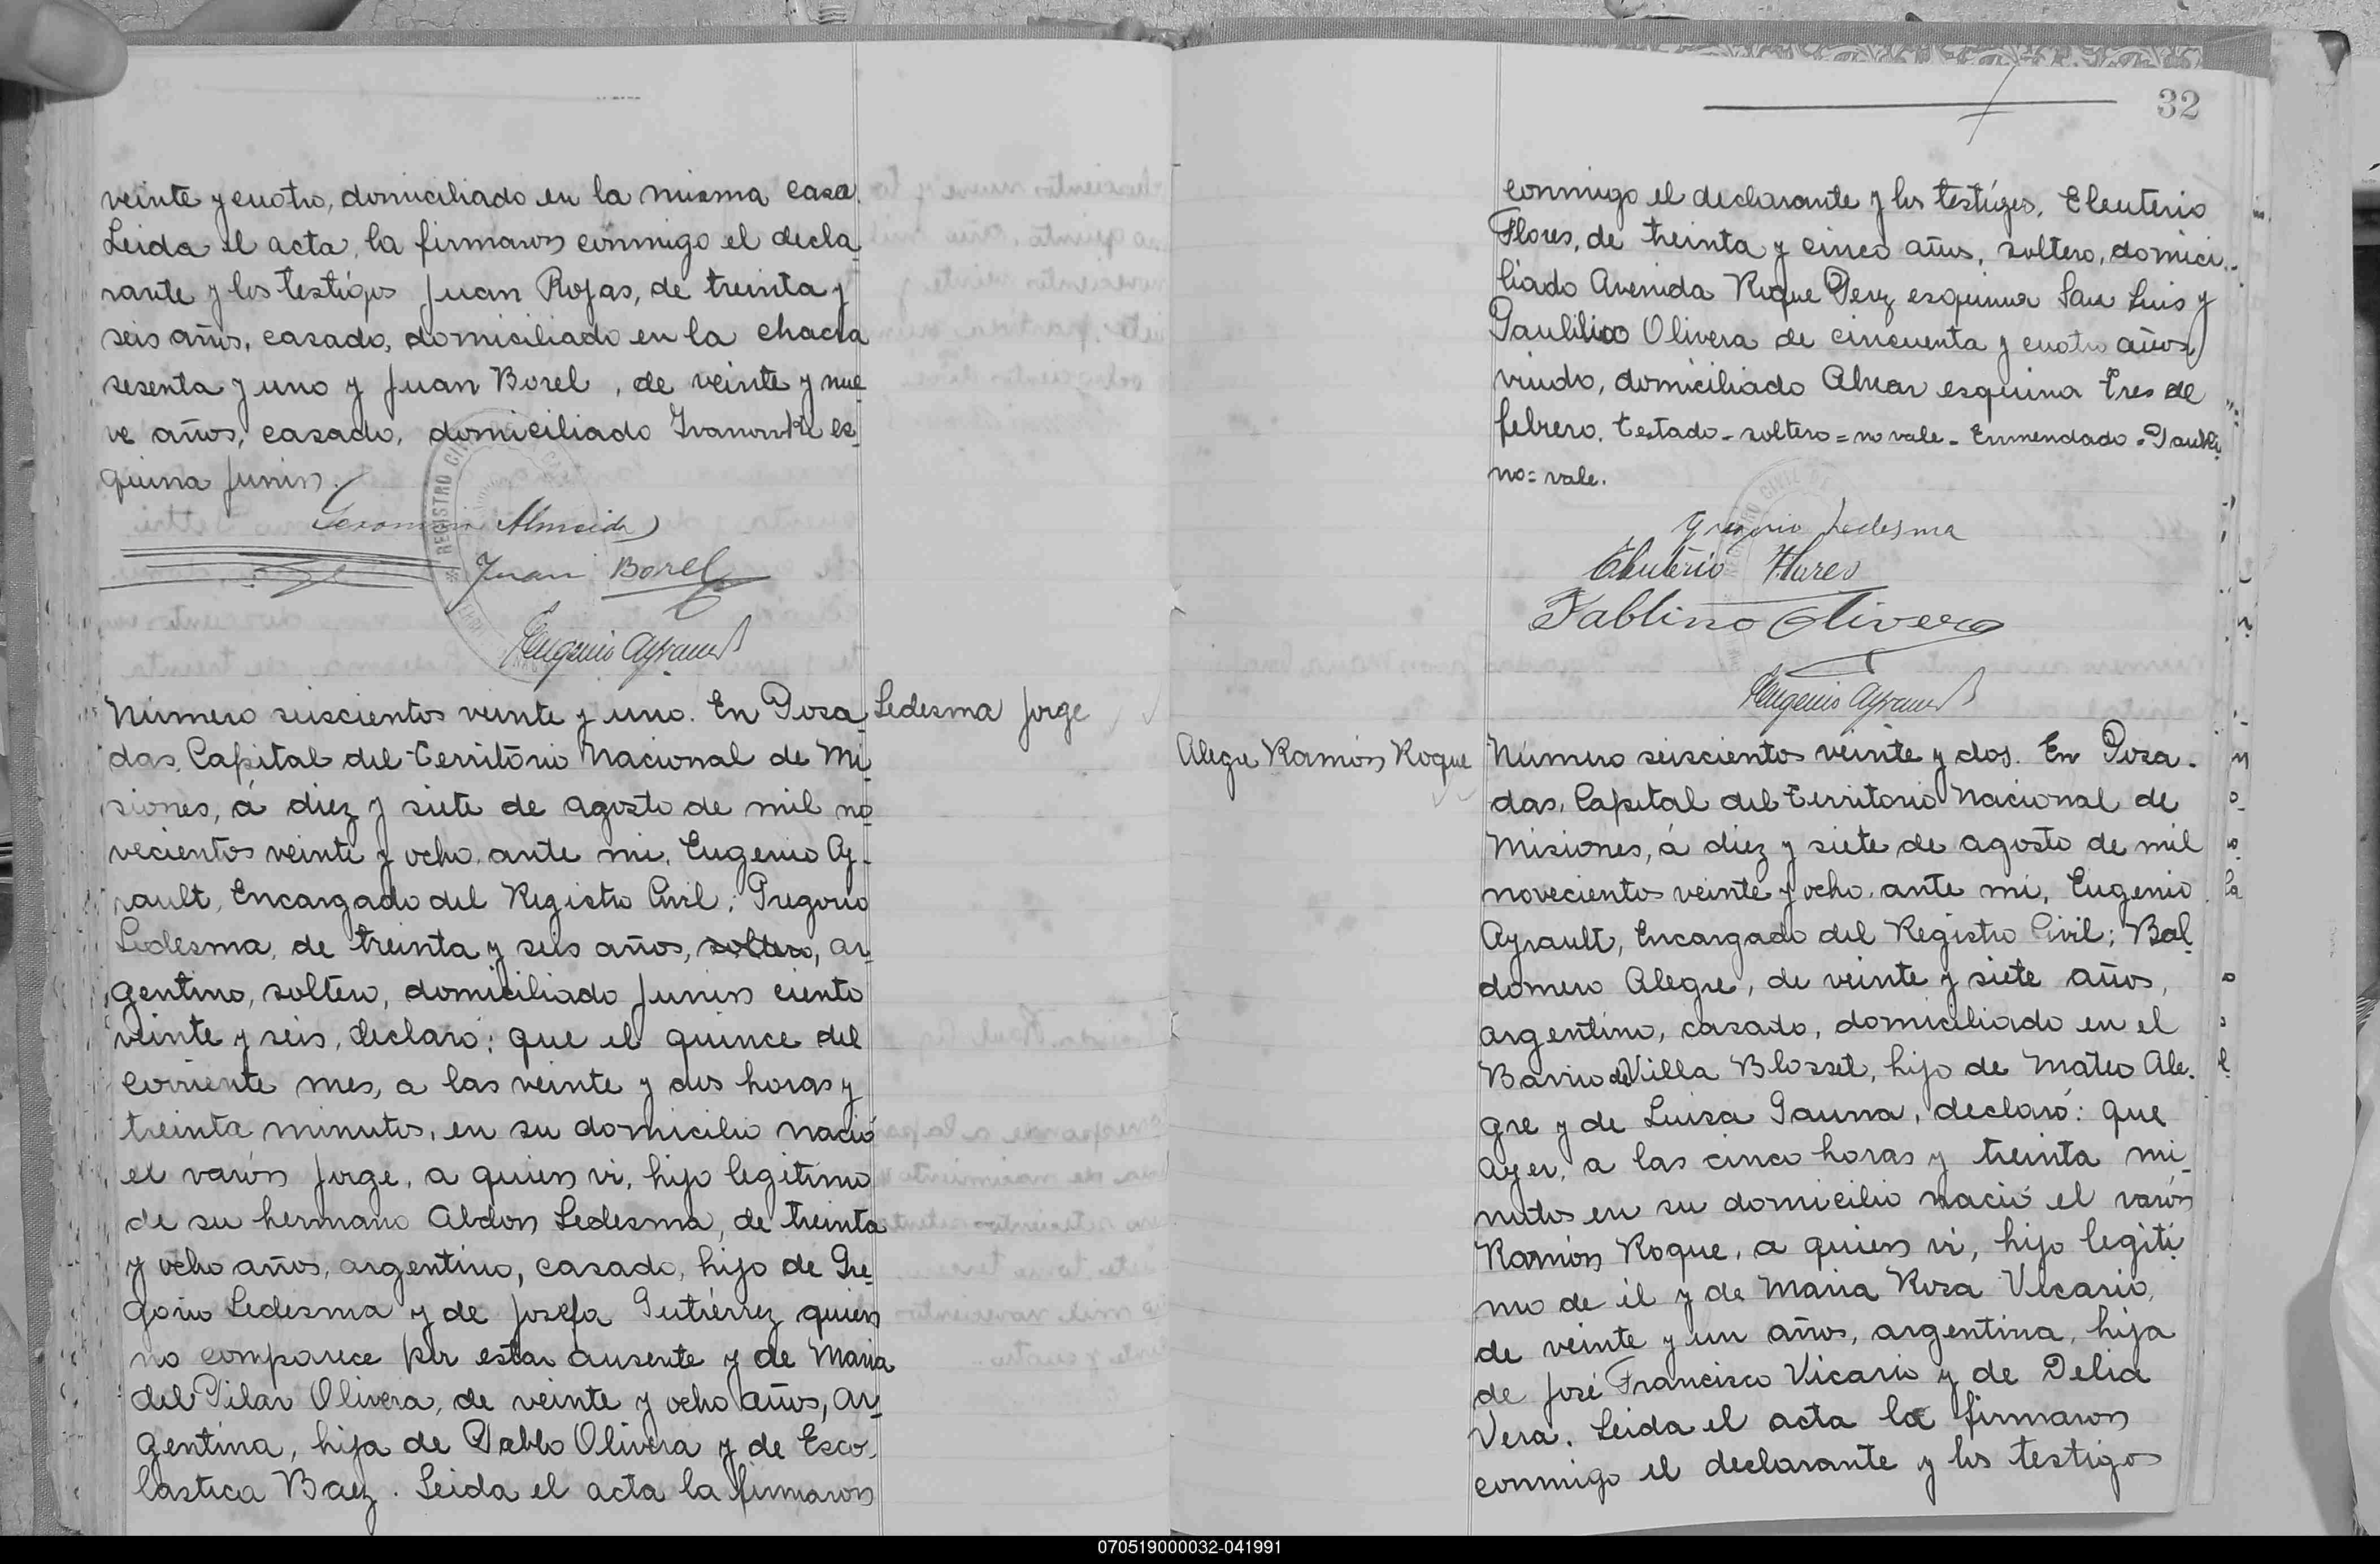 veinte y cuatro, domiciliado en la misma casa.
Leida el acta, la firmaron conmigo el decla
rante y los testigos Juan Rojas, de treinta y
seis años, casado, domiciliado en la chacra
sesenta y uno y Juan Borel, de veinte y nue
ve años, casado, domiciliado Ivanowski es
quina Junin.
Almeida
Juan Borel
Eugenio Ayrault
REGISTRO CIVIL
Número seiscientos veinte y uno. En Posa
Ledesma Jorge
das, Capital del Territorio Nacional de Mi
siones, á diez y siete de agosto de mil no
vecientos veinte y ocho, ante mi, Eugenio Ay-
rault, Encargado del Registro Civil; Gregorio
Ledesma, de treinta y seis años, soltero, ar
gentino, soltero, domiciliado Junin ciento
veinte y seis, declaró: que el quince del
corriente mes, a las veinte y dos horas y
treinta minutos, en su domicilio nació
el varón Jorge, a quien vi, hijo legítimo
de su hermano Abdon Ledesma, de treinta
y ocho años, argentino, casado, hijo de Gre
gorio Ledesma y de Josefa Gutiérrez quien
no comparece por estar ausente y de Maria
del Pilar Olivera, de veinte y ocho años, ar
gentina, hija de Pablo Olivera y de Esco-
lastica Baez. Leida el acta la firmaron
32
conmigo el declarante y los testigos, Eleuterio
Flores, de treinta y cinco años, soltero, domici-
liado Avenida Roque Perez esquina San Luis y
Paublino Olivera de cincuenta y cuatro años
viudo, domiciliado Alvear esquina tres de
febrero. Testado - soltero = no vale - Enmendado - Paubli
no = vale.
Gregorio Ledesma
Eleuterio Flores
Pablino Olivera
Eugenio Ayrault
REGISTRO CIVIL DE
Alegre Ramón Roque
Número seiscientos veinte y dos. En Posa-
das, Capital del Territorio Nacional de
Misiones, á diez y siete de agosto de mil
novecientos veinte y ocho, ante mi, Eugenio
Ayrault, Encargado del Registro Civil; Bal
domero Alegre, de veinte y siete años,
argentino, casado, domiciliado en el
Barrio de Villa Blosset, hijo de Mateo Ale-
gre y de Luisa Gauna, declaró: que
Ayer, a las cinco horas y treinta mi
nutos en su domicilio nació el varón
Ramón Roque, a quien vi, hijo legiti
mo de él y de Maria Rosa Vicario,
de veinte y un años, argentina, hija
de José Francisco Vicario y de Delia
Vera. Leida el acta la firmaron
conmigo el declarante y los testigos
070519000032-041991